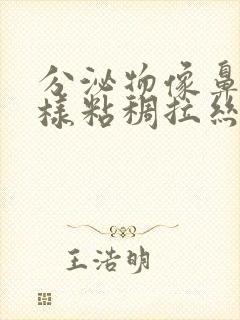 分泌物像鼻
样粘稠拉丝
王浩明